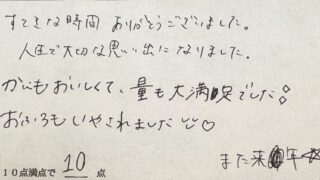 すてきな時間 ありがとうございました。
人生で大切な思い出になりました。
かにもおいしくて、量も大満足でした
おふろもいやされました♡
また来年
10点満点で 10 点